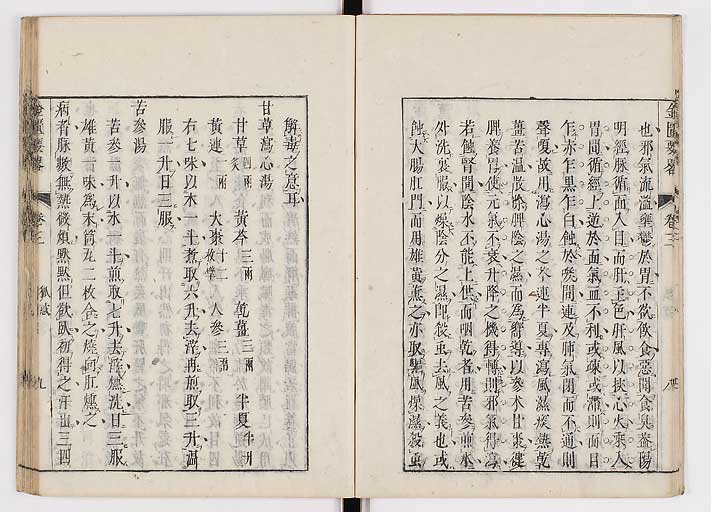 也邪氣流溢壅鬱於胃不欲飲食惡聞食臭蓋陽
明經脉循面入目而肝主色肝風以挾心火乘入
胃間循經上逆於面氣血不利或凍或滯則面目
乍赤乍黑乍白蝕於喉間連及肺氣閉而不通則
聲嗄故用瀉心湯之芩連半夏專瀉風濕痰熱乾
薑苦温散脾陰之濕而為嚮導以參木甘棗健
脾養胃使元氣不衰升降之機得轉則邪氣得瀉
若蝕腎間陰水不能上供而咽乾者用苦參煎水
外洗以燥陰分之濕即殺蟲去風之義也或
蝕大腸肛門而用雄黃熏之亦取驅風燥濕殺蟲
金匱要略
卷之
解毒之意耳
甘草瀉心湯
甘草四兩炙 黃芩三兩 乾薑三兩 半夏半升
黃連一兩 大棗十二枚 人參三兩
右七味以水一斗煮取六升去滓再煎取三升温
服一升日三服
苦參湯
苦參一升以水一斗煎取七升去滓熏洗日三服
雄黃一味為末筒瓦二枚合之燒向肛熏之
病者脉數無熱微煩默默但欲臥初得之三四
金匱要略
卷之
狐惑
九